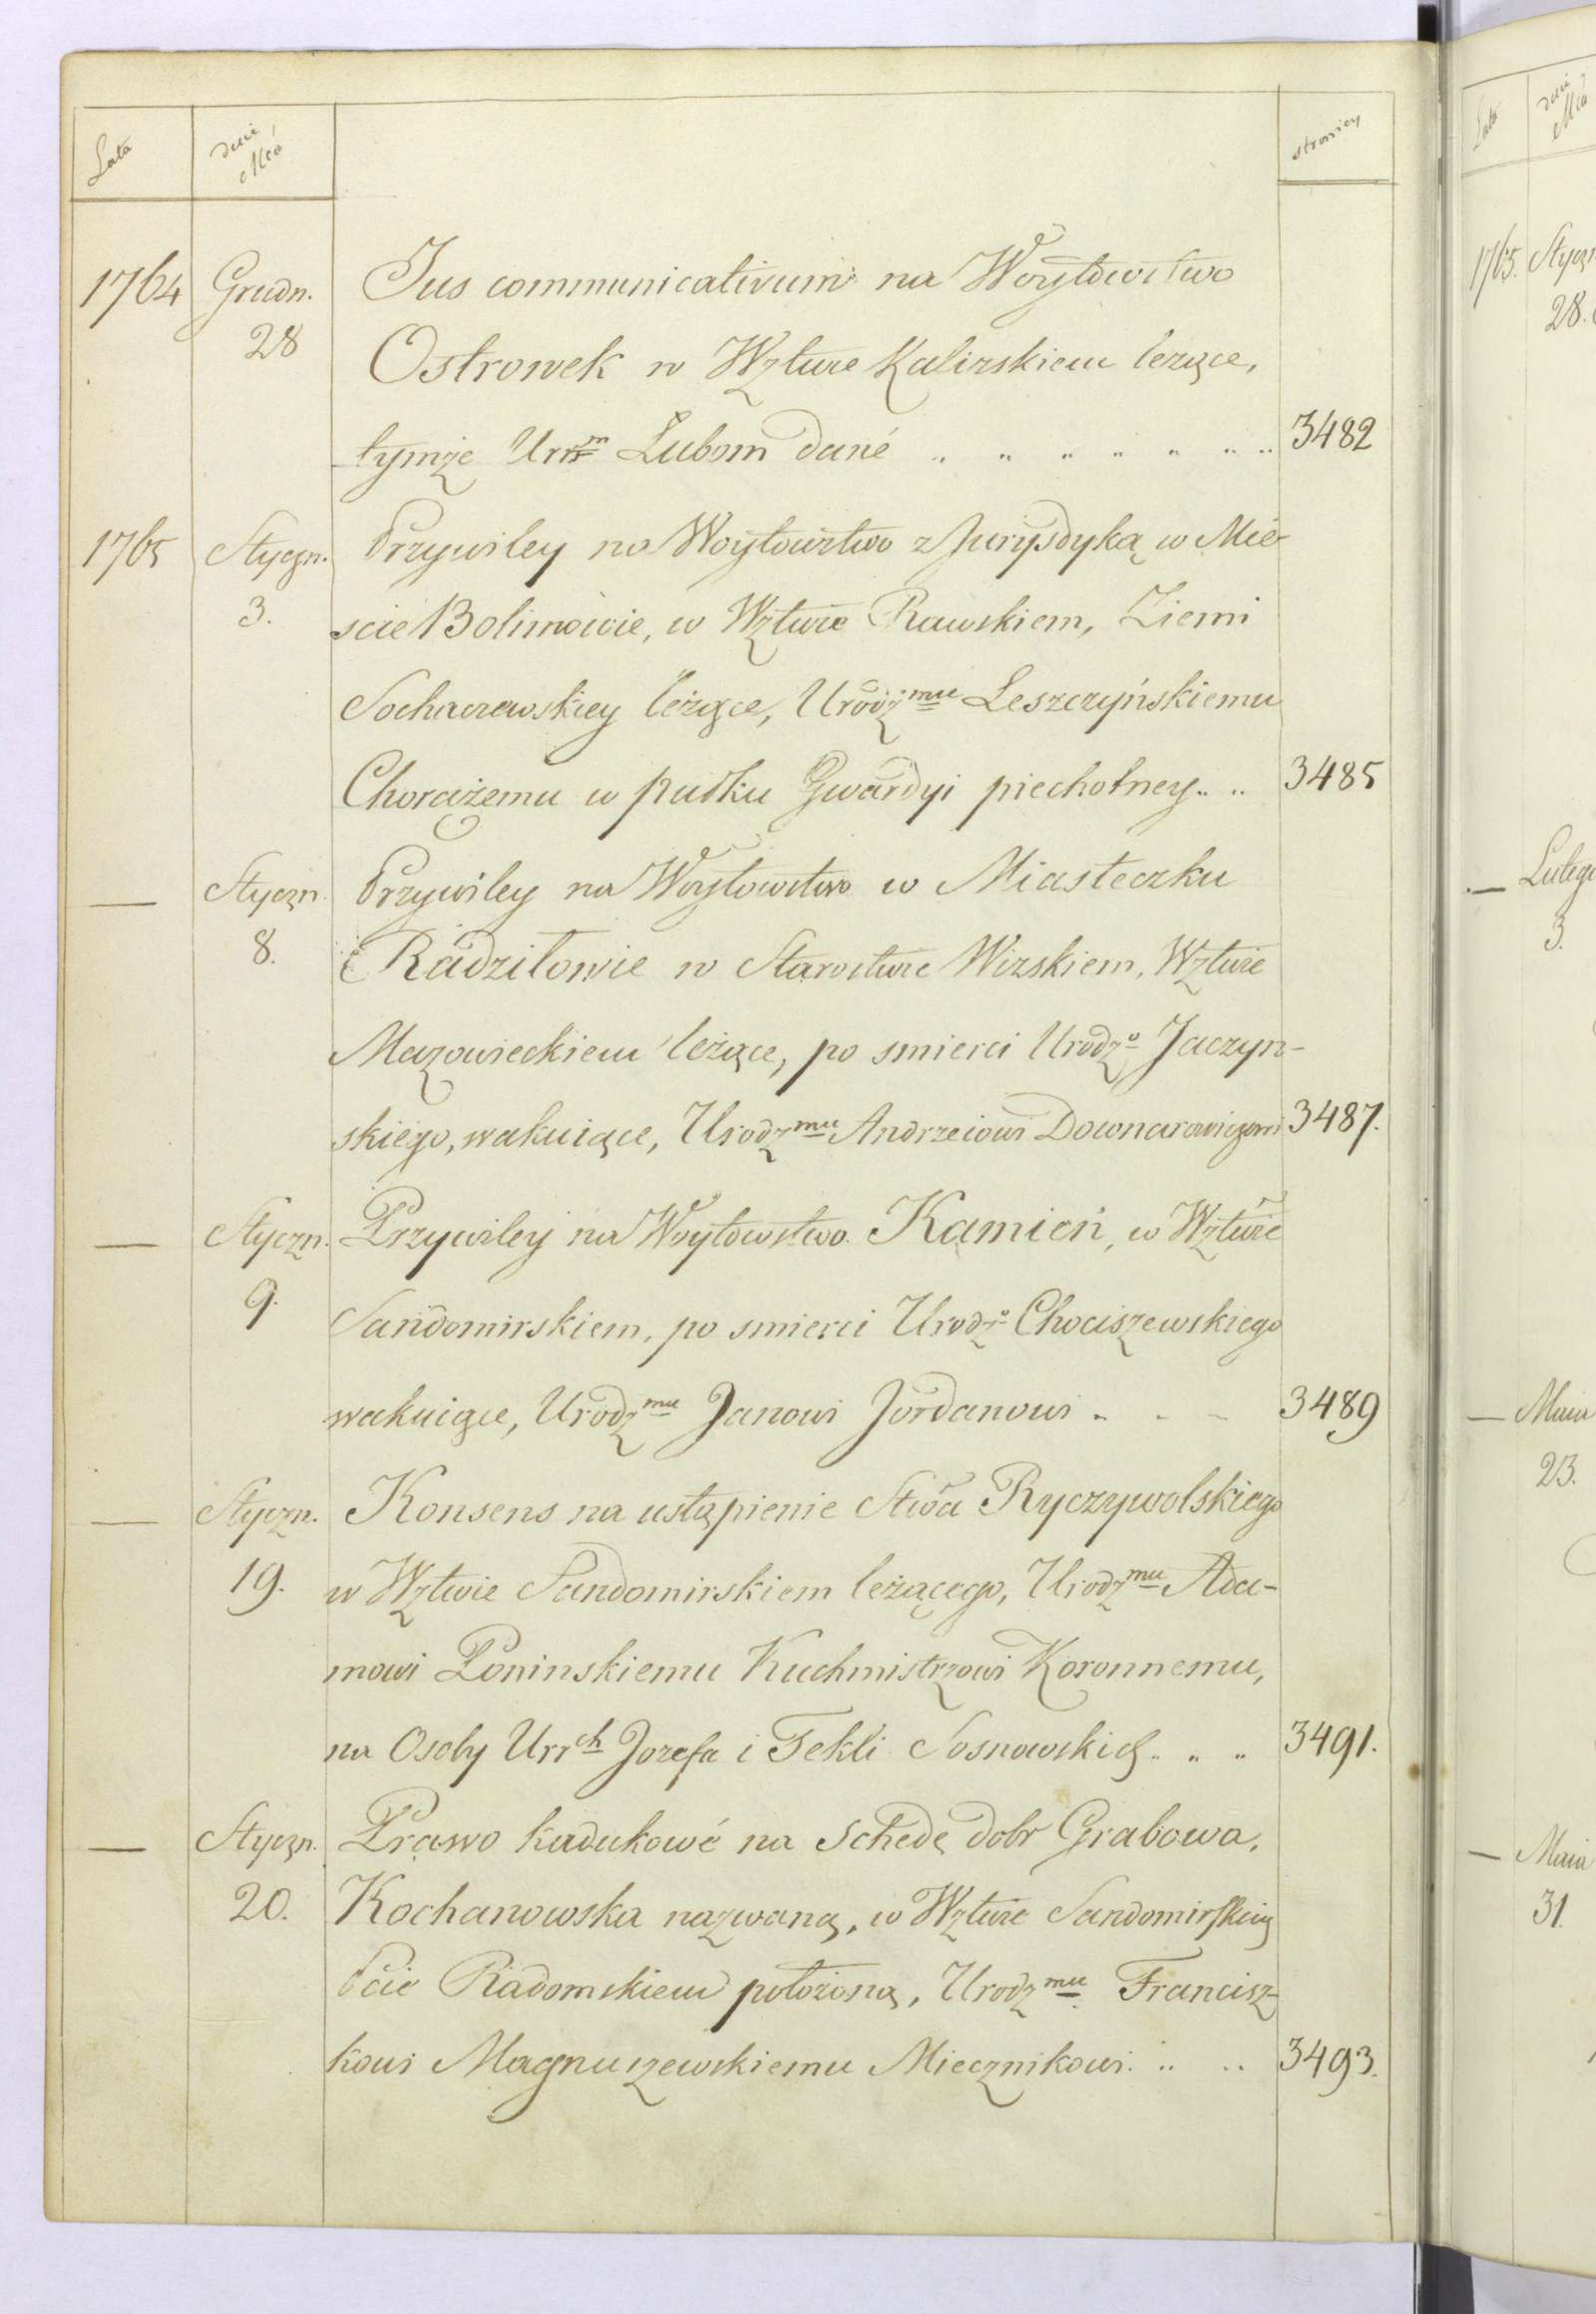 Lata dnie Mcá stronicy
1764 Grudn. Jus communicativum na Woytowstwo
28 Ostrowek w Wztwie Kaliskiem leżące,
tymże Urrm Lubom dané .. .. .. .. .. .. .. 3482
1765 Styczn. Przywiley na Woytowstwo z Jurysdyką w Mie-
3. scie Bolimowie, w Wztwie Rawskiem, Ziemi
Sochaczewskiey leżące, Urodzmu Leszczyńskiemu
Chorążemu w pułku Gwardyi piechotney .. .. 3485
— Styczn. Przywiley na Woytowstwo w Miasteczku
8. Radziłowie w Starostwie Wizskiem, Wztwie
Mazowieckiem leżące, po smierci Urodzo Jaczyn-
skiego, wakuiące, Urodzmu Andrzeiowi Downarowiczowi 3487.
— Styczn. Przywiley na Woytowstwo Kamień, w Wztwie
9. Sandomirskiem, po smierci Urodzo Chociszewskiego
wakuiące, Urodzmu Janowi Jordanowi .. .. .. 3489
— Styczn. Konsens na ustąpienie Stwa Ryczywolskiego
19. w Wztwie Sandomirskiem leżącego, Urodzmu Ada-
mowi Poninskiemu Kuchmistrzowi Koronnemu,
na Osoby Urrch Jozefa i Tekli Sosnowskich .. .. .. 3491.
— Styczn. Prawo kadukowé na Schedę dobr Grabowa,
20. Kochanowska nazwaną, w Wztwie Sandomirskiem
Pcie Radomskiem położoną, Urodzmu Francisz-
kowi Magnuszewskiemu Miecznikowi .. .. 3493.
Lata dnie Mcá
1765. Stycz
28.
— Lutego
3.
— Maia
23.
— Maia
31.